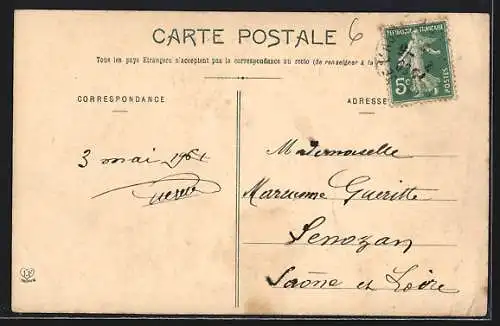 CARTE POSTALE
6
Tous les pays Etrangers n'acceptent pas la correspondance au recto (de renseigner à la
REPUBLIQUE FRANÇAISE
5c
POSTES
CORRESPONDANCE
ADRESSE
3 mai
Mademoiselle
Gueritte
Senozan
Saône et Loire